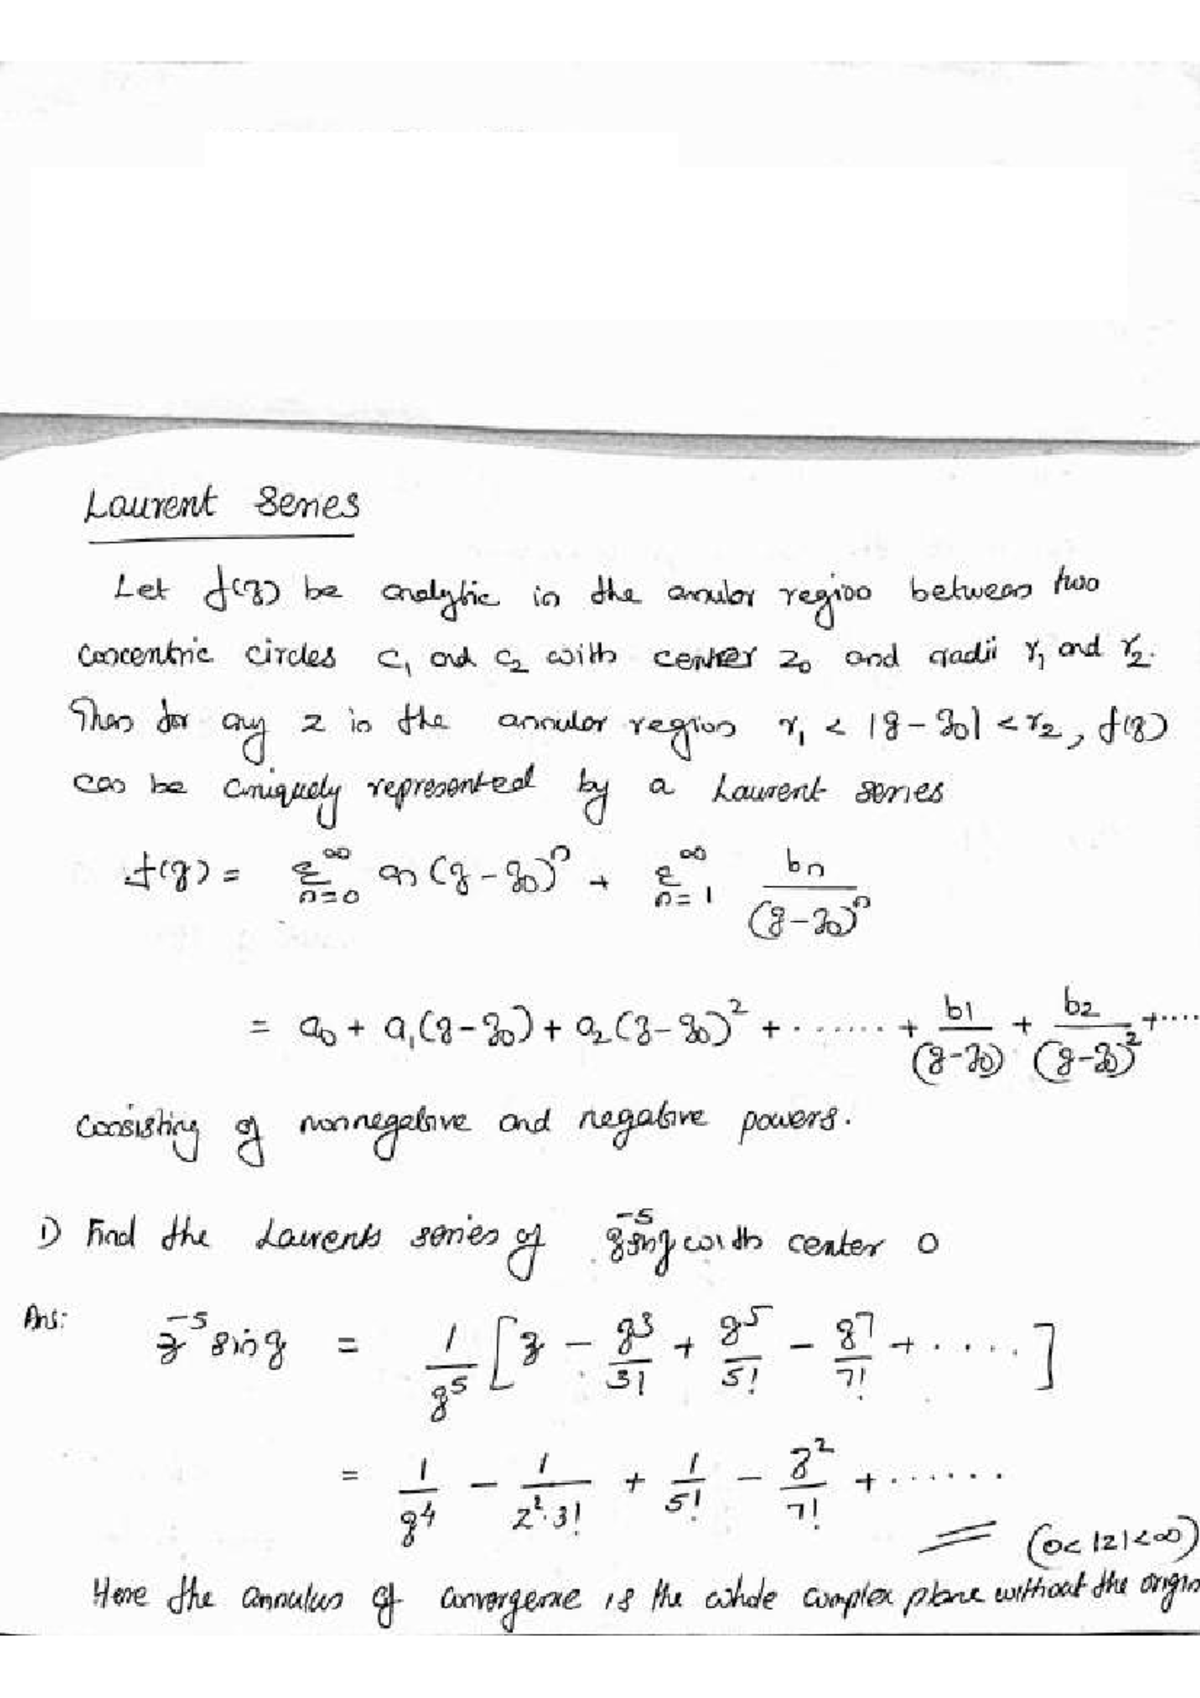 Laurent series
Let f(z) be analytic in the annular region between two
concentric circles C₁ and C₂ with center z₀ and radii r₁ and r₂.
Then for any z in the annular region r₁ < |z - z₀| < r₂, f(z)
can be uniquely represented by a Laurent series
f(z) = Σ_{n=0}^{∞} an (z - z₀)ⁿ + Σ_{n=1}^{∞} bn/(z - z₀)ⁿ
= a₀ + a₁(z - z₀) + a₂(z - z₀)² + ....... + b₁/(z - z₀) + b₂/(z - z₀)² + ....
consisting of nonnegative and negative powers.
1) Find the Laurents series of z⁻⁵ sin z with center 0
Ans: z⁻⁵ sin z = 1/z⁵ [z - z³/3! + z⁵/5! - z⁷/7! + .....]
= 1/z⁴ - 1/z²·3! + 1/5! - z²/7! + .......
(0 < |z| < ∞)
Here the annulus of convergence is the whole complex plane without the origin